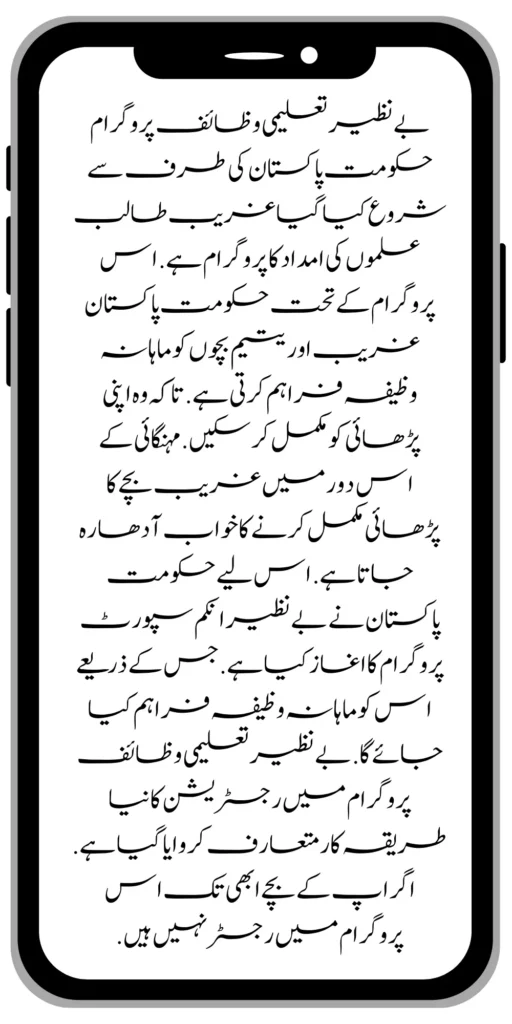 بے نظیر تعلیمی وظائف پروگرام
حکومت پاکستان کی طرف سے
شروع کیا گیا غریب طالب
علموں کی امداد کا پروگرام ہے. اس
پروگرام کے تحت حکومت پاکستان
غریب اور یتیم بچوں کو ماہانہ
وظیفہ فراہم کرتی ہے. تاکہ وہ اپنی
پڑھائی کو مکمل کر سکیں. مہنگائی کے
اس دور میں غریب بچے کا
پڑھائی مکمل کرنے کا خواب آدھا رہ
جاتا ہے. اس لیے حکومت
پاکستان نے بے نظیر انکم سپورٹ
پروگرام کا اغاز کیا ہے. جس کے ذریعے
اس کو ماہانہ وظیفہ فراہم کیا
جائے گا. بے نظیر تعلیمی وظائف
پروگرام میں رجسٹریشن کا نیا
طریقہ کار متعارف کروایا گیا ہے.
اگر اپ کے بچے ابھی تک اس
پروگرام میں رجسٹر نہیں ہیں.